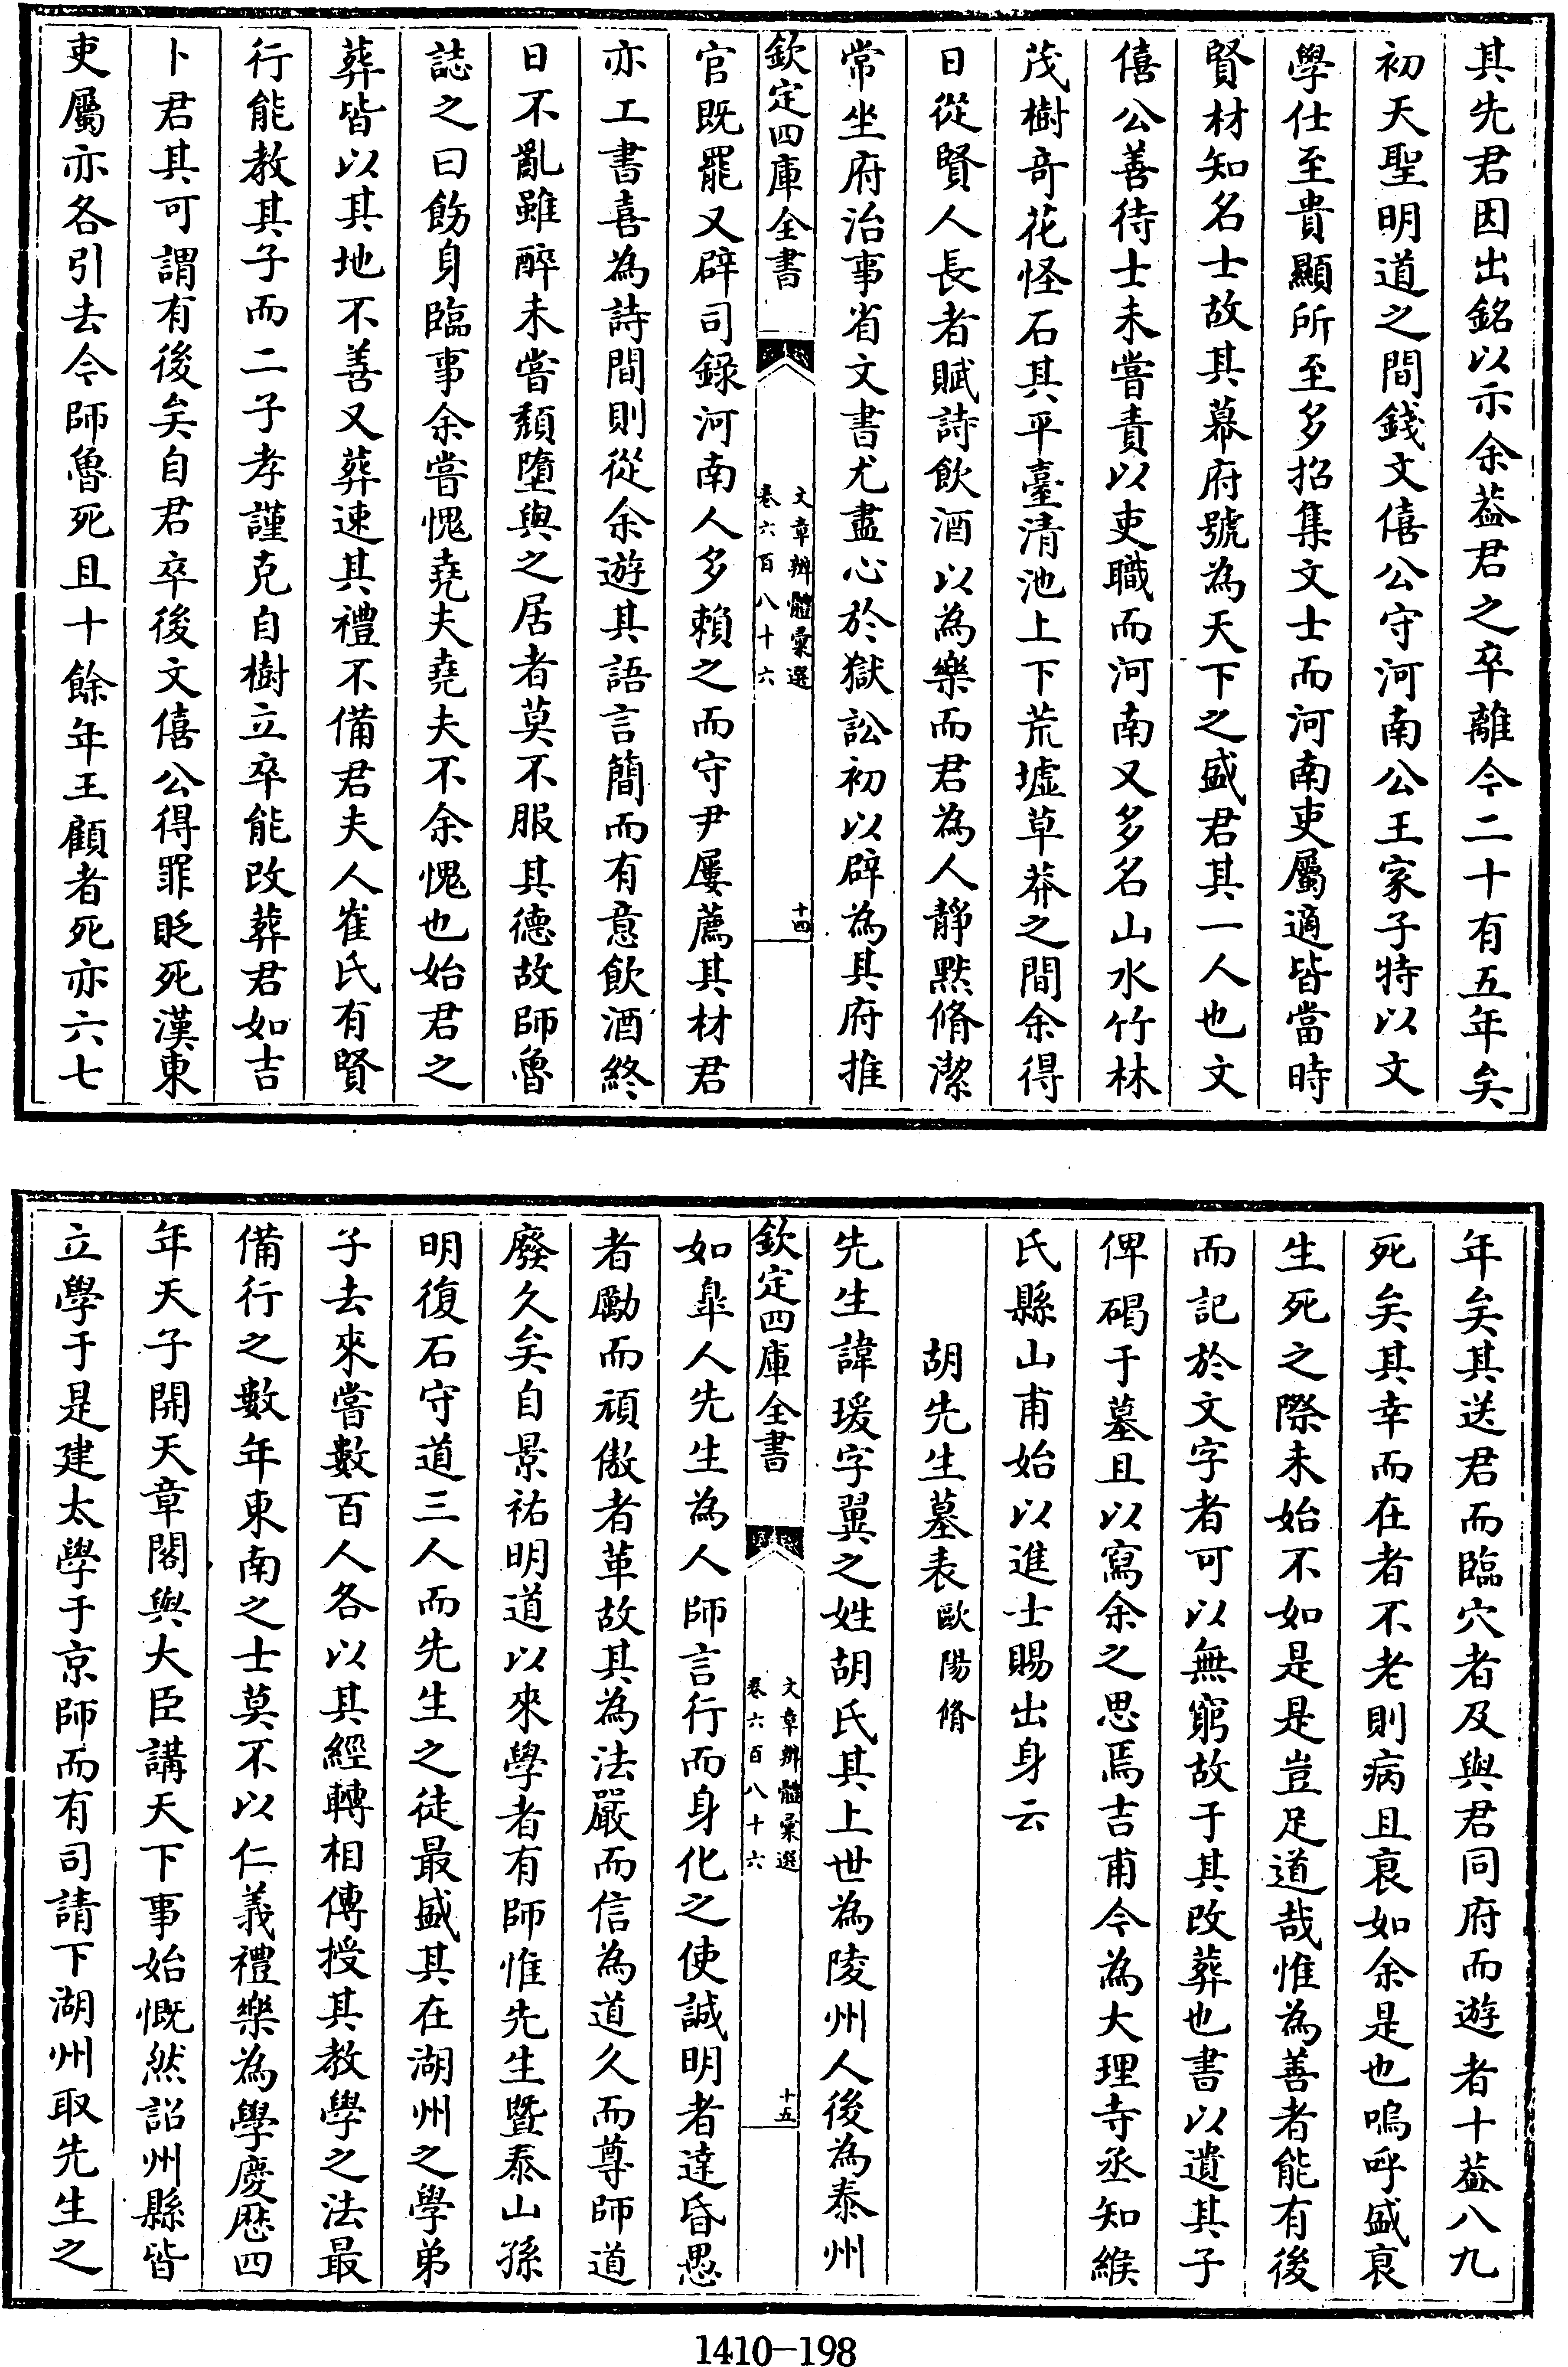 其先君因出銘以示余葢君之卒離今二十有五年矣
初天聖明道之間錢文僖公守河南公王家子特以文
學仕至貴顯所至多招集文士而河南吏屬適皆當時
賢材知名士故其幕府號為天下之盛君其一人也文
僖公善待士未嘗責以吏職而河南又多名山水竹林
茂樹奇花怪石其平臺清池上下荒墟草莽之間余得
日從賢人長者賦詩飲酒以為樂而君為人靜黙脩潔
常坐府治事省文書尤盡心於獄訟初以辟為其府推
欽定四庫全書
文章辨體彚選
卷六百八十六
十四
官既罷又辟司錄河南人多賴之而守尹屢薦其材君
亦工書喜為詩間則從余遊其語言簡而有意飲酒終
日不亂雖醉未嘗頹墮與之居者莫不服其德故師魯
誌之曰飭身臨事余嘗愧堯夫堯夫不余愧也始君之
葬皆以其地不善又葬速其禮不備君夫人崔氏有賢
行能教其子而二子孝謹克自樹立卒能改葬君如吉
卜君其可謂有後矣自君卒後文僖公得罪貶死漢東
吏屬亦各引去今師魯死且十餘年王顧者死亦六七
年矣其送君而臨穴者及與君同府而遊者十葢八九
死矣其幸而在者不老則病且衰如余是也嗚呼盛衰
生死之際未始不如是是豈足道哉惟為善者能有後
而記於文字者可以無窮故于其改葬也書以遺其子
俾碣于墓且以寫余之思焉吉甫今為大理寺丞知緱
氏縣山甫始以進士賜出身云
胡先生墓表歐陽脩
先生諱瑗字翼之姓胡氏其上世為陵州人後為泰州
欽定四庫全書
文章辨體彚選
卷六百八十六
十五
如臯人先生為人師言行而身化之使誠明者達昏愚
者勵而頑傲者革故其為法嚴而信為道久而尊師道
廢久矣自景祐明道以來學者有師惟先生暨泰山孫
明復石守道三人而先生之徒最盛其在湖州之學弟
子去來嘗數百人各以其經轉相傳授其教學之法最
備行之數年東南之士莫不以仁義禮樂為學慶厯四
年天子開天章閣與大臣講天下事始慨然詔州縣皆
立學于是建太學于京師而有司請下湖州取先生之
1410-198